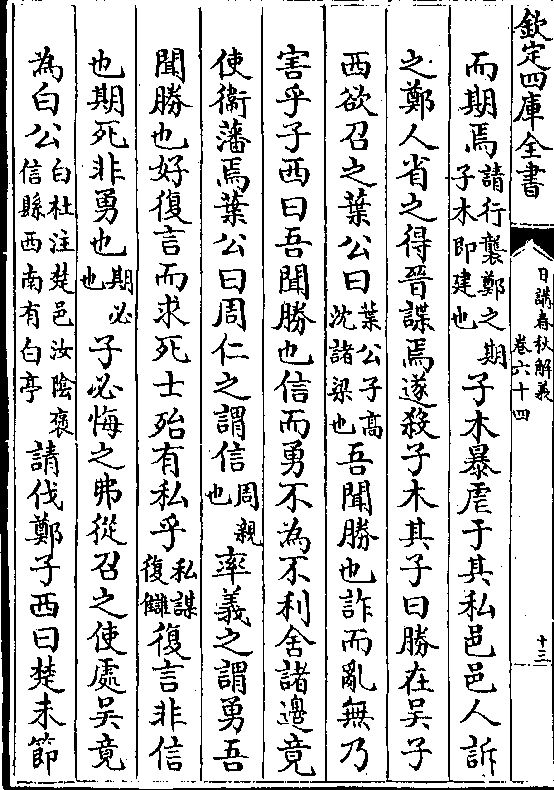 欽定四庫全書
日講春秋解義
卷六十四
十三
而期焉請行襲鄭之期子木即建也子木暴虐于其私邑邑人訴
之鄭人省之得晉諜焉遂殺子木其子曰勝在吳子
西欲召之葉公曰葉公子高沈諸梁也吾聞勝也詐而亂無乃
害乎子西曰吾聞勝也信而勇不為不利舍諸邊竟
使衞藩焉葉公曰周仁之謂信周親也率義之謂勇吾
聞勝也好復言而求死士殆有私乎私謀復讎復言非信
也期死非勇也期必也子必悔之弗從召之使處吳竟
為白公白杜注楚邑汝陰褒信縣西南有白亭請伐鄭子西曰楚未節